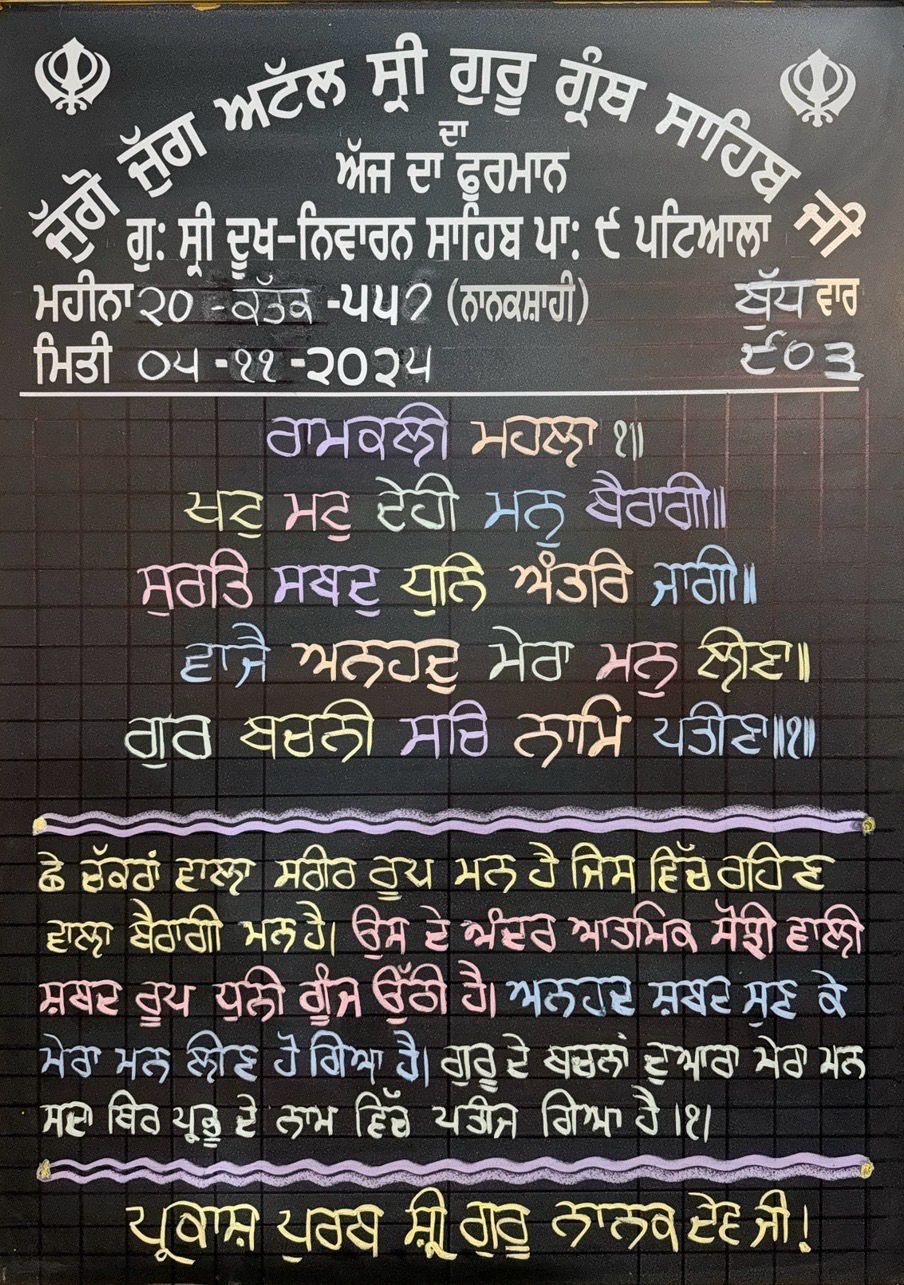 ਜੁੱਗੋ ਜੁੱਗ ਅਟੱਲ ਸ੍ਰੀ ਗੁਰੂ ਗ੍ਰੰਥ ਸਾਹਿਬ ਜੀ
ਦਾ
ਅੱਜ ਦਾ ਫੂਰਮਾਨ
ਗੁ: ਸ੍ਰੀ ਦੂਖ-ਨਿਵਾਰਨ ਸਾਹਿਬ ਪਾ: ੯ ਪਟਿਆਲਾ
ਮਹੀਨਾ ੨੦ - ਕੱਤਕ - ੫੫੭ (ਨਾਨਕਸ਼ਾਹੀ) ਬੁੱਧ ਵਾਰ
ਮਿਤੀ ੦੫ - ੧੧ - ੨੦੨੫ ੯੦੩
ਰਾਮਕਲੀ ਮਹਲਾ ੧॥
ਖਟੁ ਮਟੁ ਦੇਹੀ ਮਨੁ ਬੈਰਾਗੀ॥
ਸੁਰਤਿ ਸਬਦੁ ਧੁਨਿ ਅੰਤਰਿ ਜਾਗੀ॥
ਵਾਜੈ ਅਨਹਦੁ ਮੇਰਾ ਮਨੁ ਲੀਣਾ॥
ਗੁਰ ਬਚਨੀ ਸਚਿ ਨਾਮਿ ਪਤੀਣਾ॥੧॥
ਛੇ ਚੱਕਰਾਂ ਵਾਲਾ ਸਰੀਰ ਰੂਪ ਮਨ ਹੈ ਜਿਸ ਵਿੱਚ ਰਹਿਣ
ਵਾਲਾ ਬੈਰਾਗੀ ਮਨ ਹੈ। ਉਸ ਦੇ ਅੰਦਰ ਆਤਮਿਕ ਸੋਝੀ ਵਾਲੀ
ਸ਼ਬਦ ਰੂਪ ਧੁਨੀ ਗੂੰਜ ਉੱਠੀ ਹੈ। ਅਨਹਦ ਸ਼ਬਦ ਸੁਣ ਕੇ
ਮੇਰਾ ਮਨ ਲੀਣ ਹੋ ਗਿਆ ਹੈ। ਗੁਰੂ ਦੇ ਬਚਨਾਂ ਦੁਆਰਾ ਮੇਰਾ ਮਨ
ਸਦਾ ਥਿਰ ਪ੍ਰਭੂ ਦੇ ਨਾਮ ਵਿੱਚ ਪਤੀਜ ਗਿਆ ਹੈ।੧।
ਪ੍ਰਕਾਸ਼ ਪੁਰਬ ਸ਼੍ਰੀ ਗੁਰੂ ਨਾਨਕ ਦੇਵ ਜੀ!